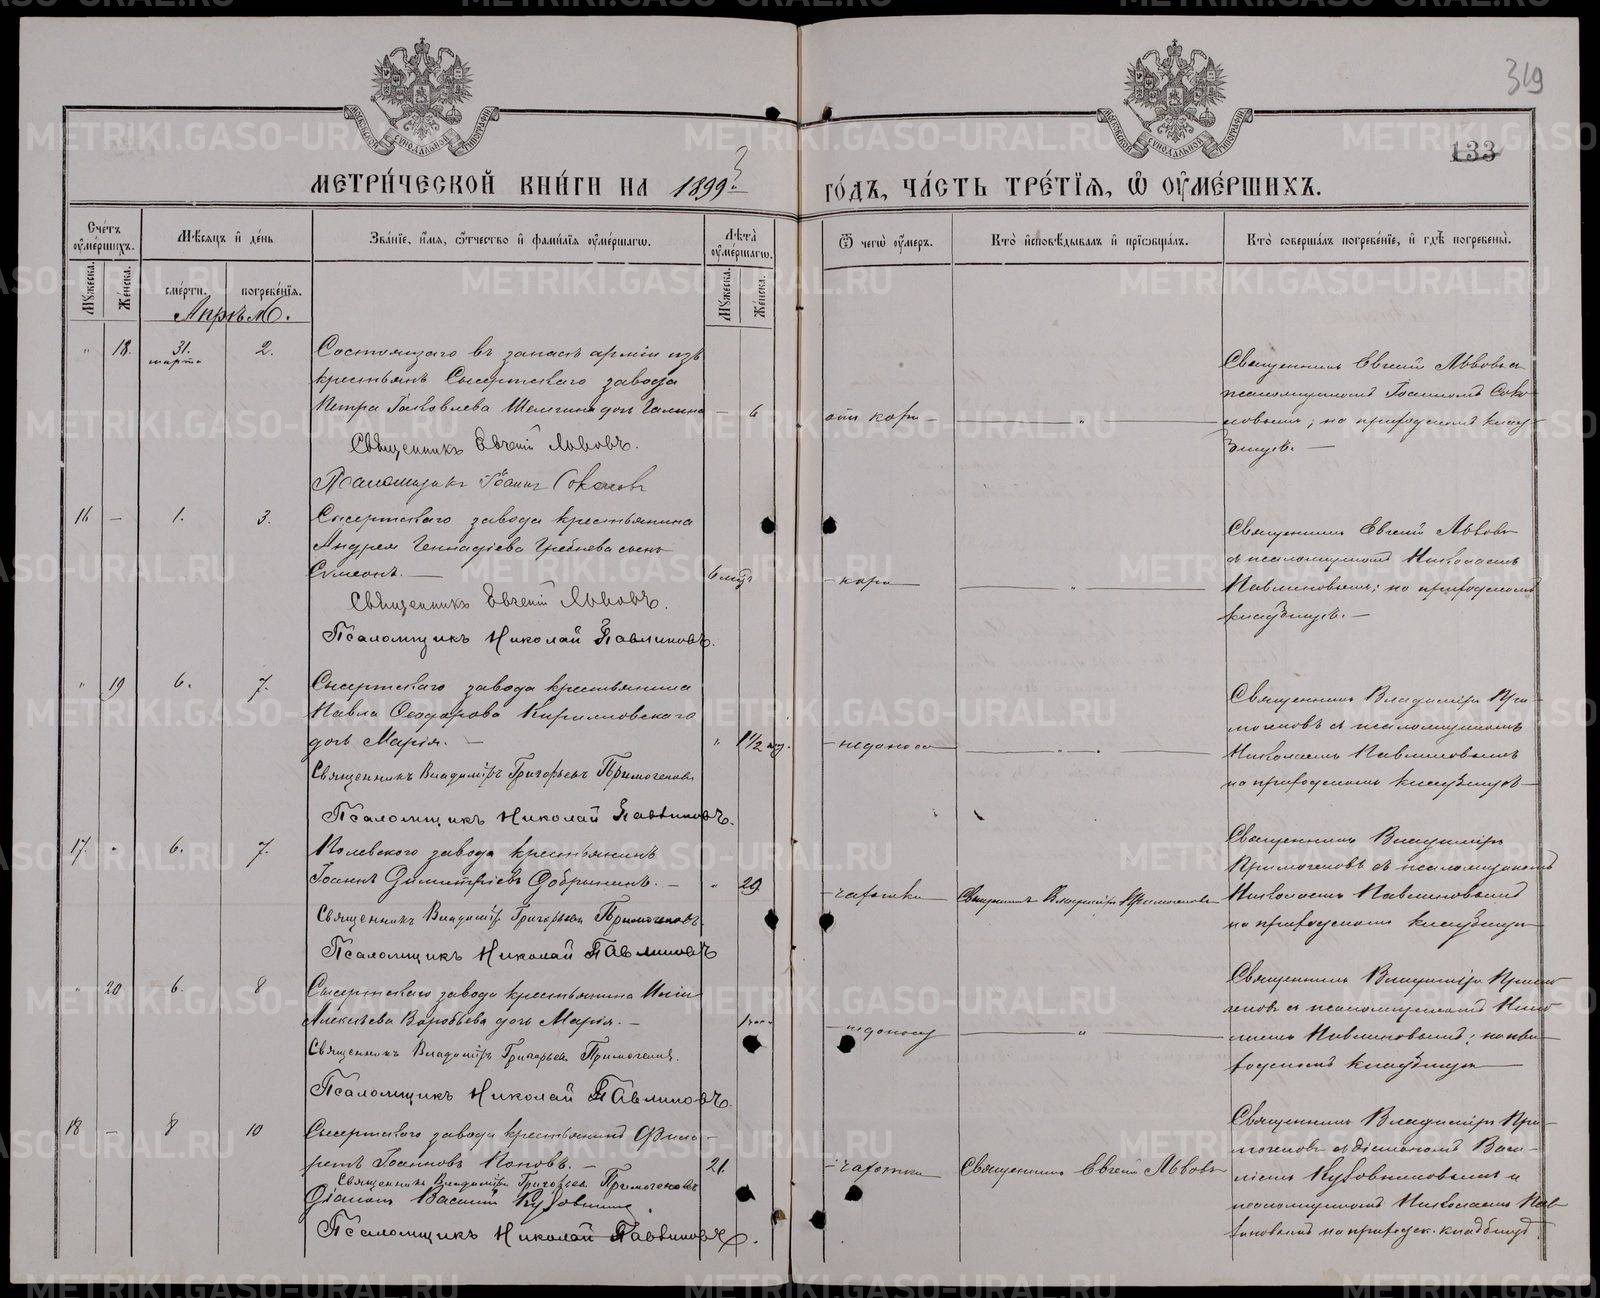 319
133
МЕТРИ́ЧЕСКОЙ КНИ́ГИ НА 1899й ГО́ДЪ, ЧА́СТЬ ТРЕ́ТІѦ, Ѽ ОУ҆МЕ́РШИХЪ.
Сче́тъ оу҆ме́ршихъ.
Мѣ́сяцъ и҆ де́нь
Зва́нїе, и҆́мя, ѻ҆́тчество и҆ фами́лїя оу҆ме́ршагѡ.
Лѣ́та оу҆ме́ршагѡ.
Ѿ чегѡ̀ оу҆́меръ.
Кто̀ и҆сповѣ́дывалъ и҆ прїѡбща́лъ.
Кто̀ соверша́лъ погребе́нїе, и҆ гдѣ̀ погребены̀.
Мꙋ́жеска.
Же́нска.
сме́рти.
погребе́нїя.
Мꙋ́жеска.
Же́нска.
Апрѣль.
" 18. 31. марта 2.
Состоящаго въ запасѣ арміи изъ
крестьянъ Сысертскаго завода
Петра Іаковлева дочь Галина — 6
Священникъ Евгеній Львовъ.
Псаломщикъ Іоаннъ Соколовъ
отъ кори — " —
Священникъ Евгеній Львовъ съ
псаломщикомъ Іоанномъ Соко-
ловымъ; на приходскомъ клад-
бищѣ. —
16 — 1. 3.
Сысертскаго завода крестьянина
Андрея Геннадіева сынъ
Сѵмеонъ. — 6 мѣц
Священникъ Евгеній Львовъ.
Псаломщикъ Николай Павлиновъ.
– кори — " —
Священникъ Евгеній Львовъ
съ псаломщикомъ Николаемъ
Павлиновымъ; на приходскомъ
кладбищѣ. —
" 19 6. 7.
Сысертскаго завода крестьянина
Павла Ѳеодорова Кирилловскаго
дочь Марія. — " 1 1/2
Священникъ Владиміръ Григорьевъ Примогеновъ
Псаломщикъ Николай Павлиновъ.
– недоноса — " —
Священникъ Владиміръ При-
могеновъ съ псаломщикомъ
Николаемъ Павлиновымъ
на приходскомъ кладбищѣ —
17. - 6. 7.
Полевского завода крестьянинъ
Іоаннъ Димитріевъ Добрынинъ. — " 29
Священникъ Владиміръ Григорьевъ Примогеновъ.
Псаломщикъ Николай Павлиновъ
– чахотки
Священникъ Владиміръ Примогеновъ
Священникъ Владиміръ
Примогеновъ съ псаломщикомъ
Николаемъ Павлиновымъ
на приходскомъ кладбищѣ
" 20 6. 8
Сысертскаго завода крестьянина Иліи
Алексѣева Воробьева дочь Марія. —
Священникъ Владиміръ Григорьевъ Примогеновъ.
Псаломщикъ Николай Павлиновъ.
– недоносу — " —
Священникъ Владиміръ Примо-
геновъ съ псаломщикомъ Нико-
лаемъ Павлиновымъ; на при-
ходскомъ кладбищѣ
18 — 8 10
Сысертскаго завода крестьянинъ Фила-
ретъ Іоанновъ Поповъ. — 21.
Священникъ Владиміръ Григорьевъ Примогеновъ
Діаконъ Василій Кудовшинъ.
Псаломщикъ Николай Павлиновъ.
– чахотки
Священникъ Евгеній Львовъ
Священникъ Владиміръ При-
могеновъ съ діакономъ Васи-
ліемъ и
псаломщикомъ Николаемъ Пав-
линовымъ на приходск. кладбищѣ